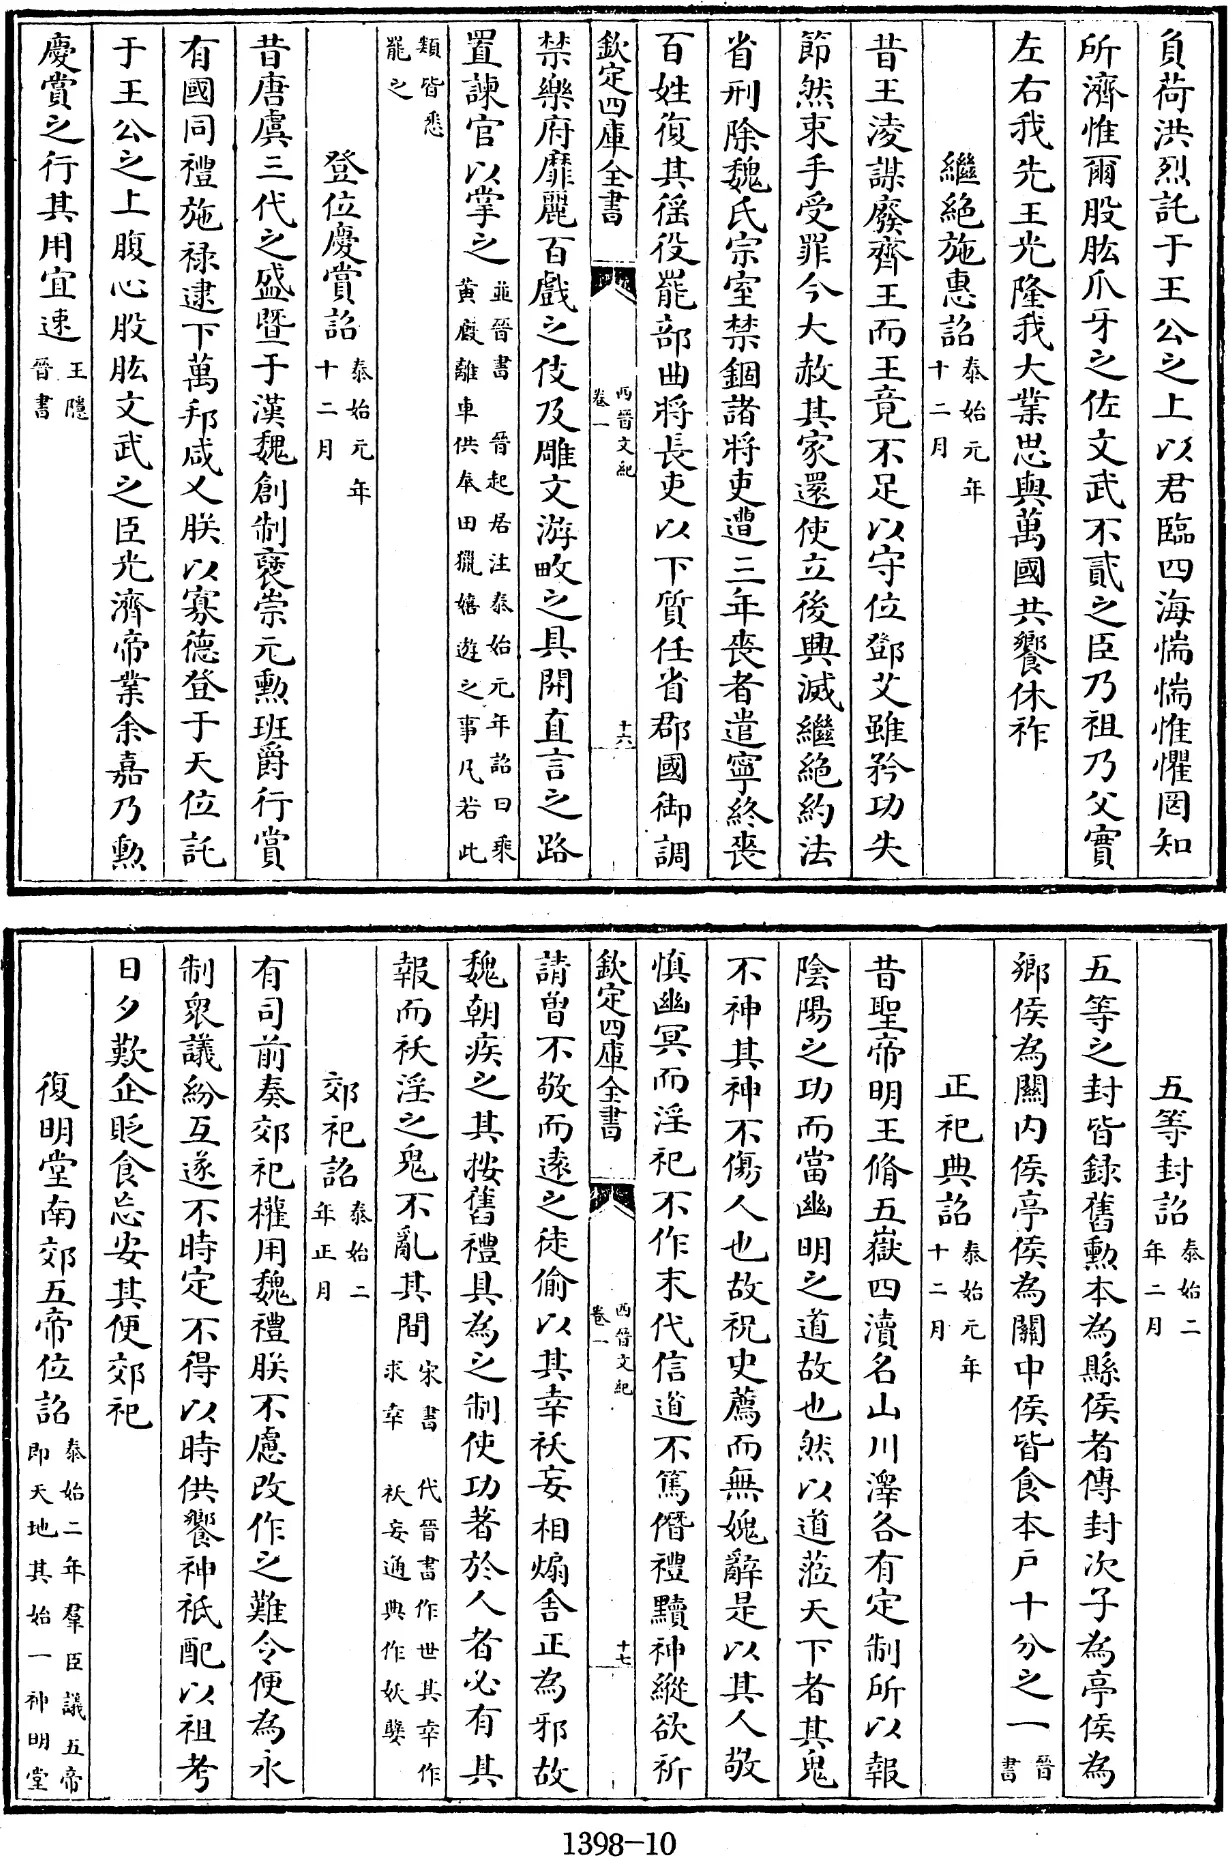 負荷洪烈託于王公之上以君臨四海惴惴惟懼罔知
所濟惟爾股肱爪牙之佐文武不貳之臣乃祖乃父實
左右我先王光隆我大業思與萬國共饗休祚
繼絶施惠詔泰始元年十二月
昔王淩謀廢齊王而王竟不足以守位鄧艾雖矜功失
節然束手受罪今大赦其家還使立後興滅繼絶約法
省刑除魏氏宗室禁錮諸將吏遭三年喪者遣寧終喪
百姓復其徭役罷部曲將長吏以下質任省郡國御調
欽定四庫全書 西晉文紀 卷一 十六
禁樂府靡麗百戲之伎及雕文游畋之具開直言之路
置諫官以掌之並晉書 晉起居注泰始元年詔曰乘黃廄離車供奉田獵嬉遊之事凡若此
類皆悉罷之
登位慶賞詔泰始元年十二月
昔唐虞三代之盛暨于漢魏創制襃崇元勳班爵行賞
有國同禮施祿逮下萬邦咸乂朕以寡德登于天位託
于王公之上腹心股肱文武之臣光濟帝業余嘉乃勲
慶賞之行其用宜速王隱晉書
五等封詔泰始二年二月
五等之封皆録舊勲本為縣侯者傳封次子為亭侯為
鄉侯為關内侯亭侯為關中侯皆食本戶十分之一晉書
正祀典詔泰始元年十二月
昔聖帝明王脩五嶽四瀆名山川澤各有定制所以報
陰陽之功而當幽明之道故也然以道蒞天下者其鬼
不神其神不傷人也故祝史薦而無媿辭是以其人敬
慎幽冥而淫祀不作末代信道不篤僭禮黷神縱欲祈
欽定四庫全書 西晉文紀 卷一 十七
請曽不敬而遠之徒偷以其幸祅妄相煽舍正為邪故
魏朝疾之其按舊禮具為之制使功著於人者必有其
報而祅淫之鬼不亂其間宋書 代晉書作世其幸作求幸 祅妄通典作妖孽
郊祀詔泰始二年正月
有司前奏郊祀權用魏禮朕不慮改作之難令便為永
制衆議紛互遂不時定不得以時供饗神祇配以祖考
日夕歎企貶食忘安其便郊祀
復明堂南郊五帝位詔泰始二年羣臣議五帝即天地其始一神明堂
1398-10